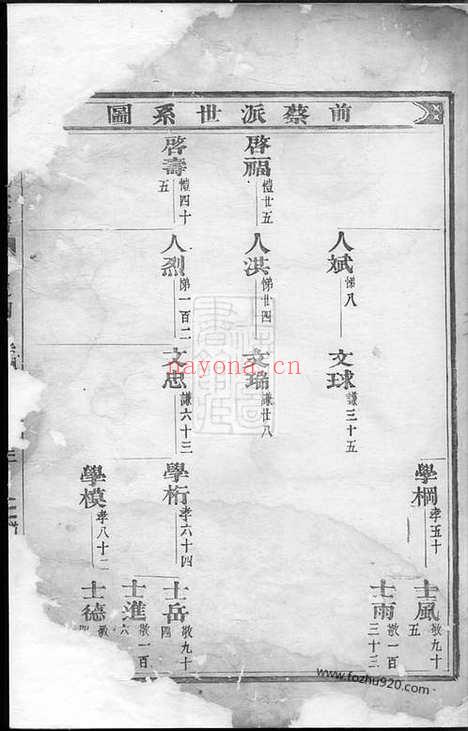 前蔡派世系圖
學棡 孝五十
士風 敬九十五
士雨 敬一百三十三
人斌 悌八
文球 謙三十五
啓福 愷廿五
人洪 悌廿四
文瑞 謙廿八
啓壽 愷四十五
人烈 悌一百二
文忠 謙六十三
學桁 孝六十四
士岳 敬九十四
士進 敬一百六
學模 孝八十二
士德 敬
nayona.cn
www.fozhu920.com